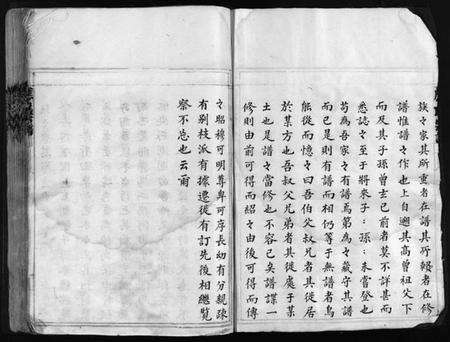 族々家其所重者在譜其所輟者在修
譜惟譜々作也上自遡其高曾祖父下
而及其子孫曾玄已前者莫不詳甚而
悉誌々至于將來子々孫々未嘗登也
苟為吾家々有譜焉第為々藏守其譜
而已是則有譜而相仍等于無譜者烏
能從而憶々曰吾伯父叔兄者其從居
於某方也吾叔父兄弟者其從處于某
土也是譜々當修也不容已矣譜謀一
修則由前可得而紹々由後可得而傳
々昭穆可明尊卑可序長幼有分親疎
有别枝派有據遷徙有訂先後相繼覧
察不忘也云爾